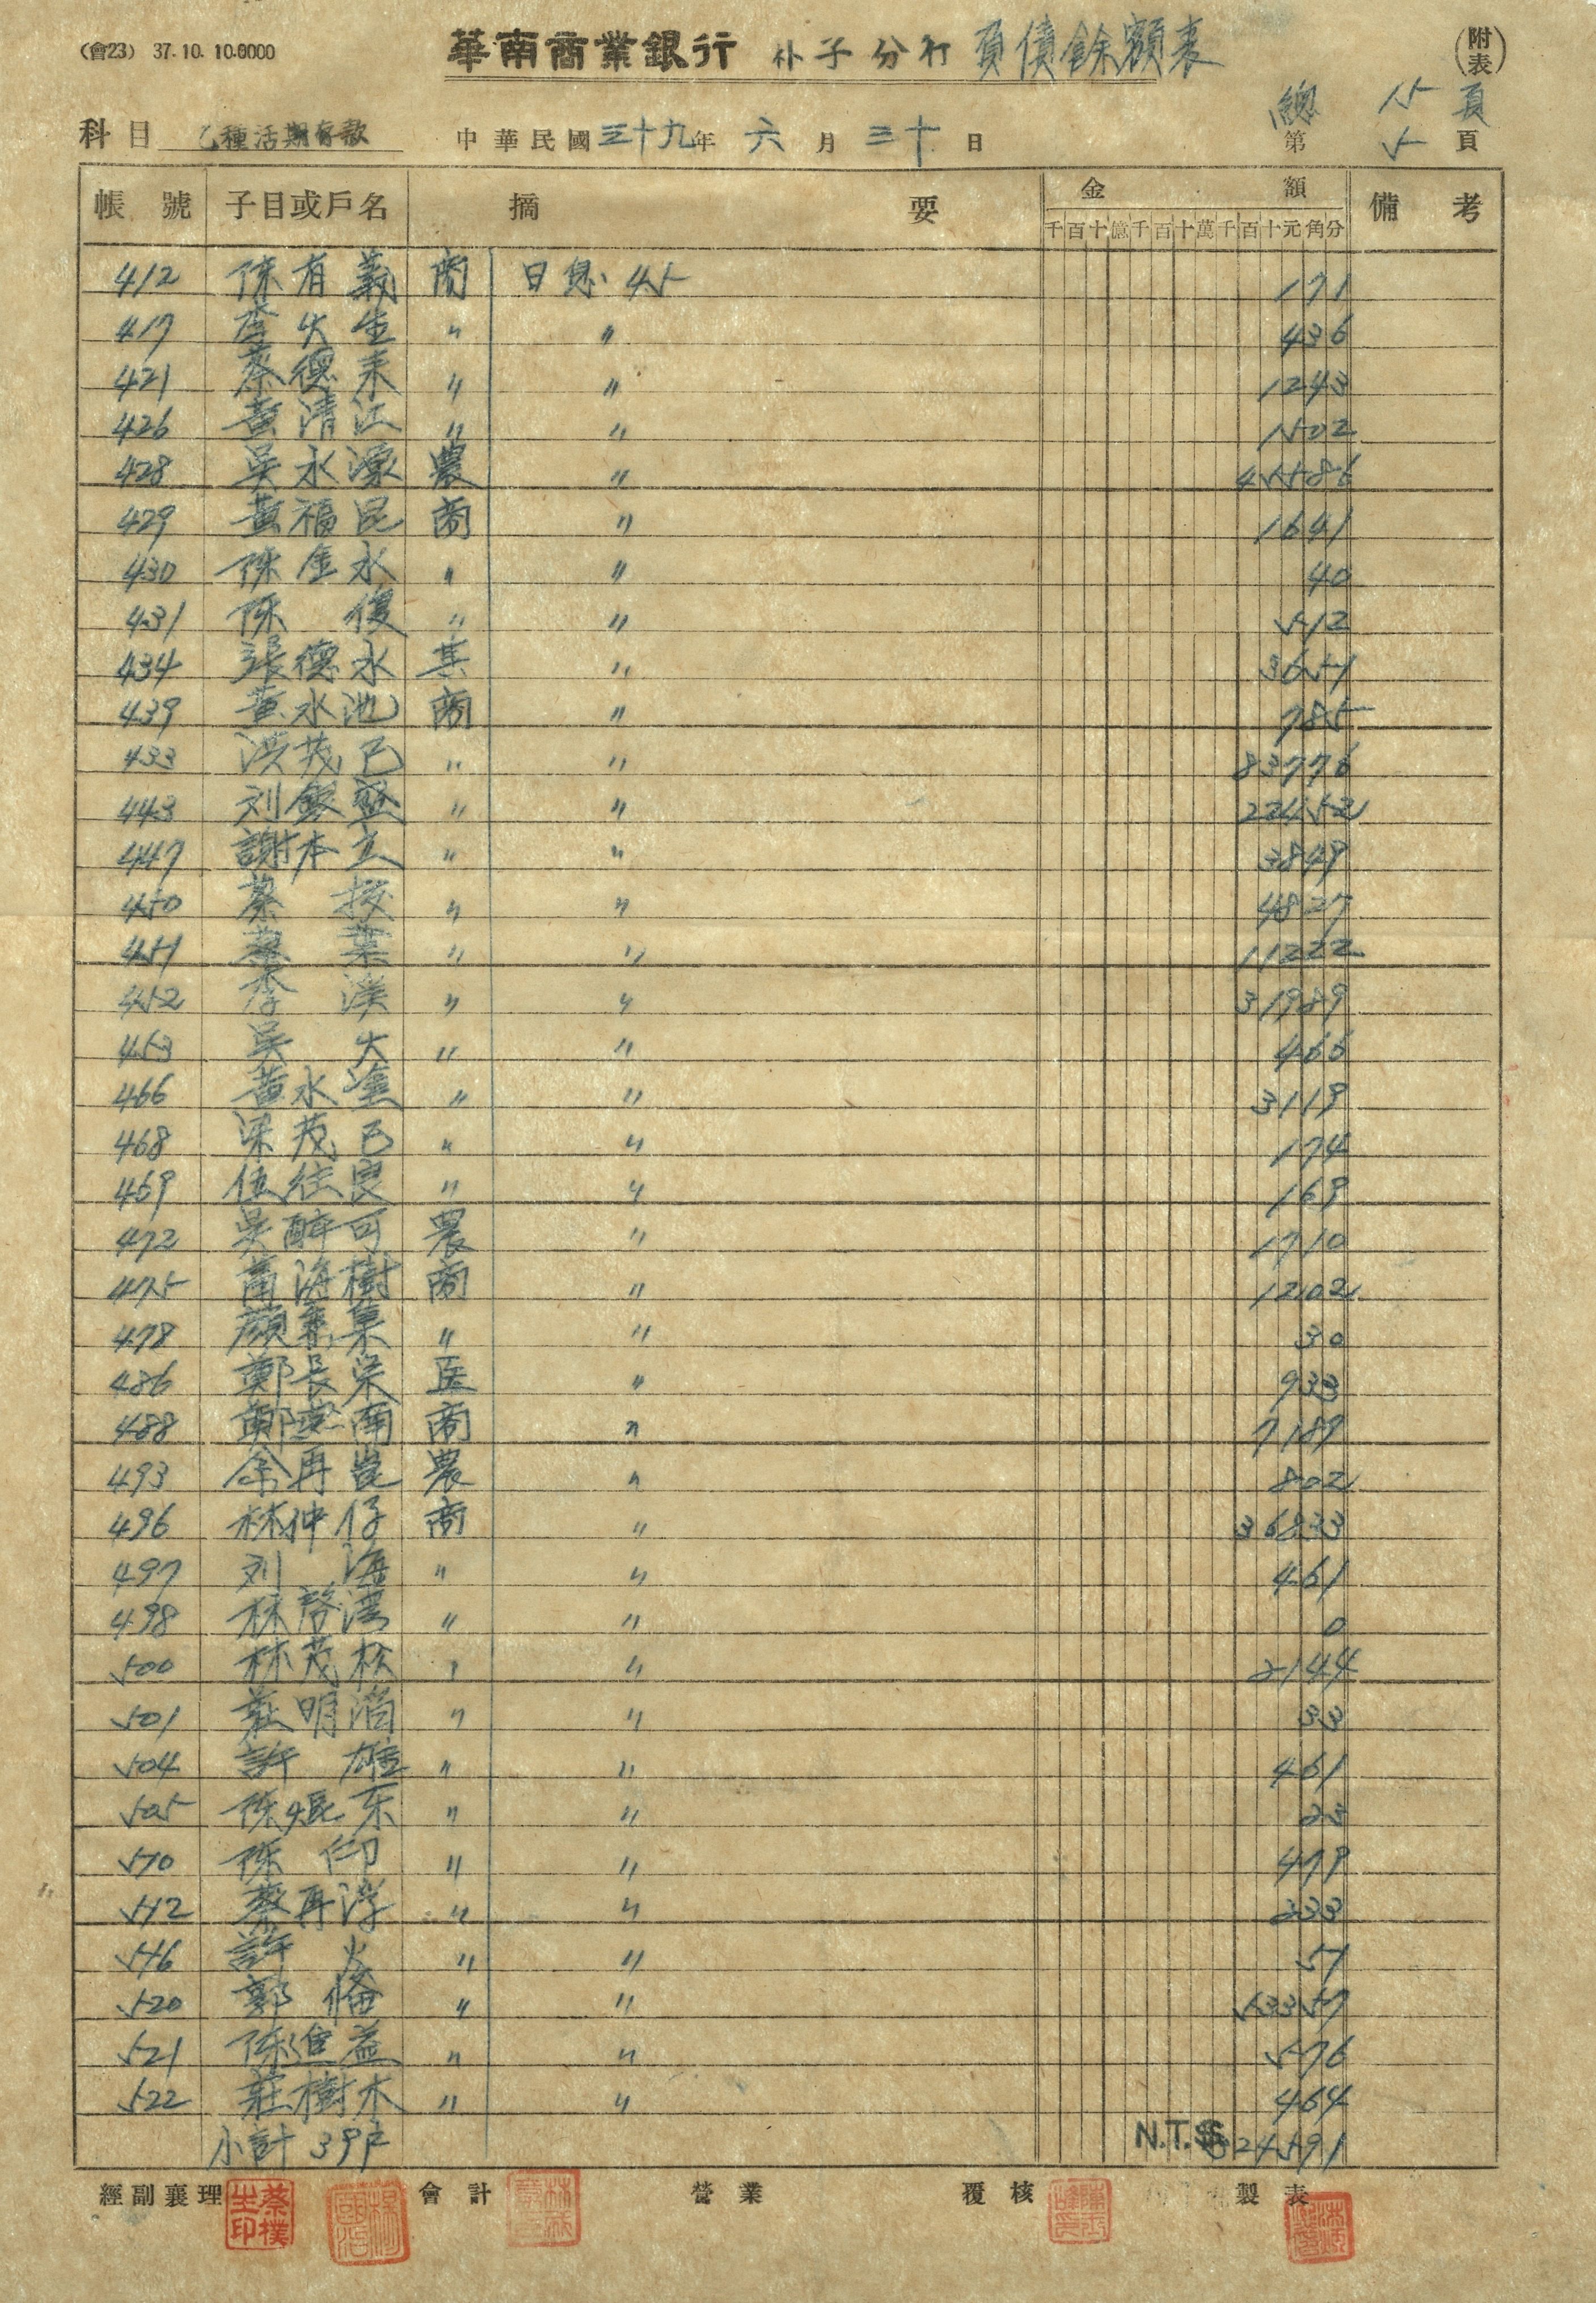 (會23) 37.10.10.0000 華南商業銀行 朴子分行 負債餘額表 (附表)
總 15 頁
科目 乙種活期存款 中華民國三十九年 六 月 三十 日 第 5 頁
帳號 子目或戶名 摘要 金額 備考
千百十億千百十萬千百十元角分
412 陳有義 商 日息 45 171
417 李火生 〃 〃 436
421 蔡德来 〃 〃 1243
426 黃清江 〃 〃 1502
428 吳永源 農 〃 45586
429 黃福昆 商 〃 1641
430 陳金水 〃 〃 40
431 陳 復 〃 〃 512
434 張德水 其 〃 3651
439 黃水池 商 〃 785
433 洪茂已 〃 〃 83776
443 刘銀盤 〃 〃 22452
447 謝本立 〃 〃 3849
450 蔡 〃 〃 4827
451 蔡 葉 〃 〃 11222
452 李 漢 〃 〃 31989
453 吳 火 〃 〃 466
466 黃水塗 〃 〃 3119
468 梁茂已 〃 〃 174
469 伍徃良 〃 〃 169
472 吳醉可 農 〃 1710
475 黃海樹 商 〃 1202
478 顏集 〃 〃 30
486 鄭長榮 医 〃 933
488 鄭南 商 〃 7189
493 余再崑 農 〃 802
496 林仲仔 商 〃 36833
497 刘 海 〃 〃 461
498 林啓湾 〃 〃 0
500 林茂松 〃 〃 2144
501 莊明滔 〃 〃 33
504 許 雄 〃 〃 461
505 陳焜東 〃 〃 23
510 陳 印 〃 〃 479
512 蔡再浮 〃 〃 233
516 許 火 〃 〃 51
520 郭 〃 〃 53357
521 陳進益 〃 〃 576
522 莊樹木 〃 〃 464
小計 39戶 N.T.$ 324591
經副襄理 會計 營業 覆核 製表
蔡樸生印